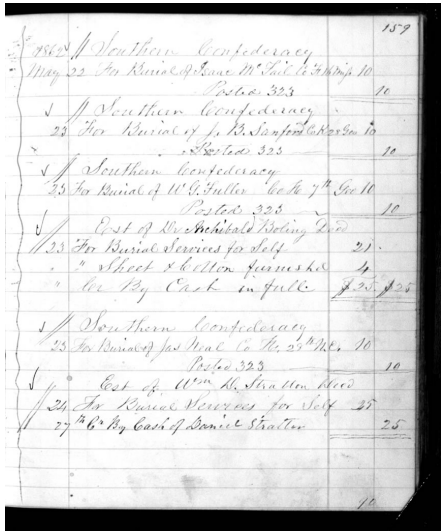 159
1862 Southern Confederacy
May 22 For Burial of Isaac Mc Co 16 Miss 10
Posted 323 10
Southern Confederacy
23 For Burial of J. B. Sanford Co K 28 Geo 10
" Posted 323 10
Southern Confederacy
23 For Burial of W G. Fuller Co H 7th Geo 10
Posted 323 10
Est of Dr Archibald Boling Decd
23 For Burial Services for Self 21 -
" " Sheet & Cotton furnished 4
" Cr By Cash in full $25 $25
Southern Confederacy
23 For Burial of Jas Neal Co H, 23th N.C. 10
Posted 323 10
Est of Wm D. Stratton Decd
24 For Burial Services for Self 25
27th Cr By Cash of Daniel Stratton 25
90